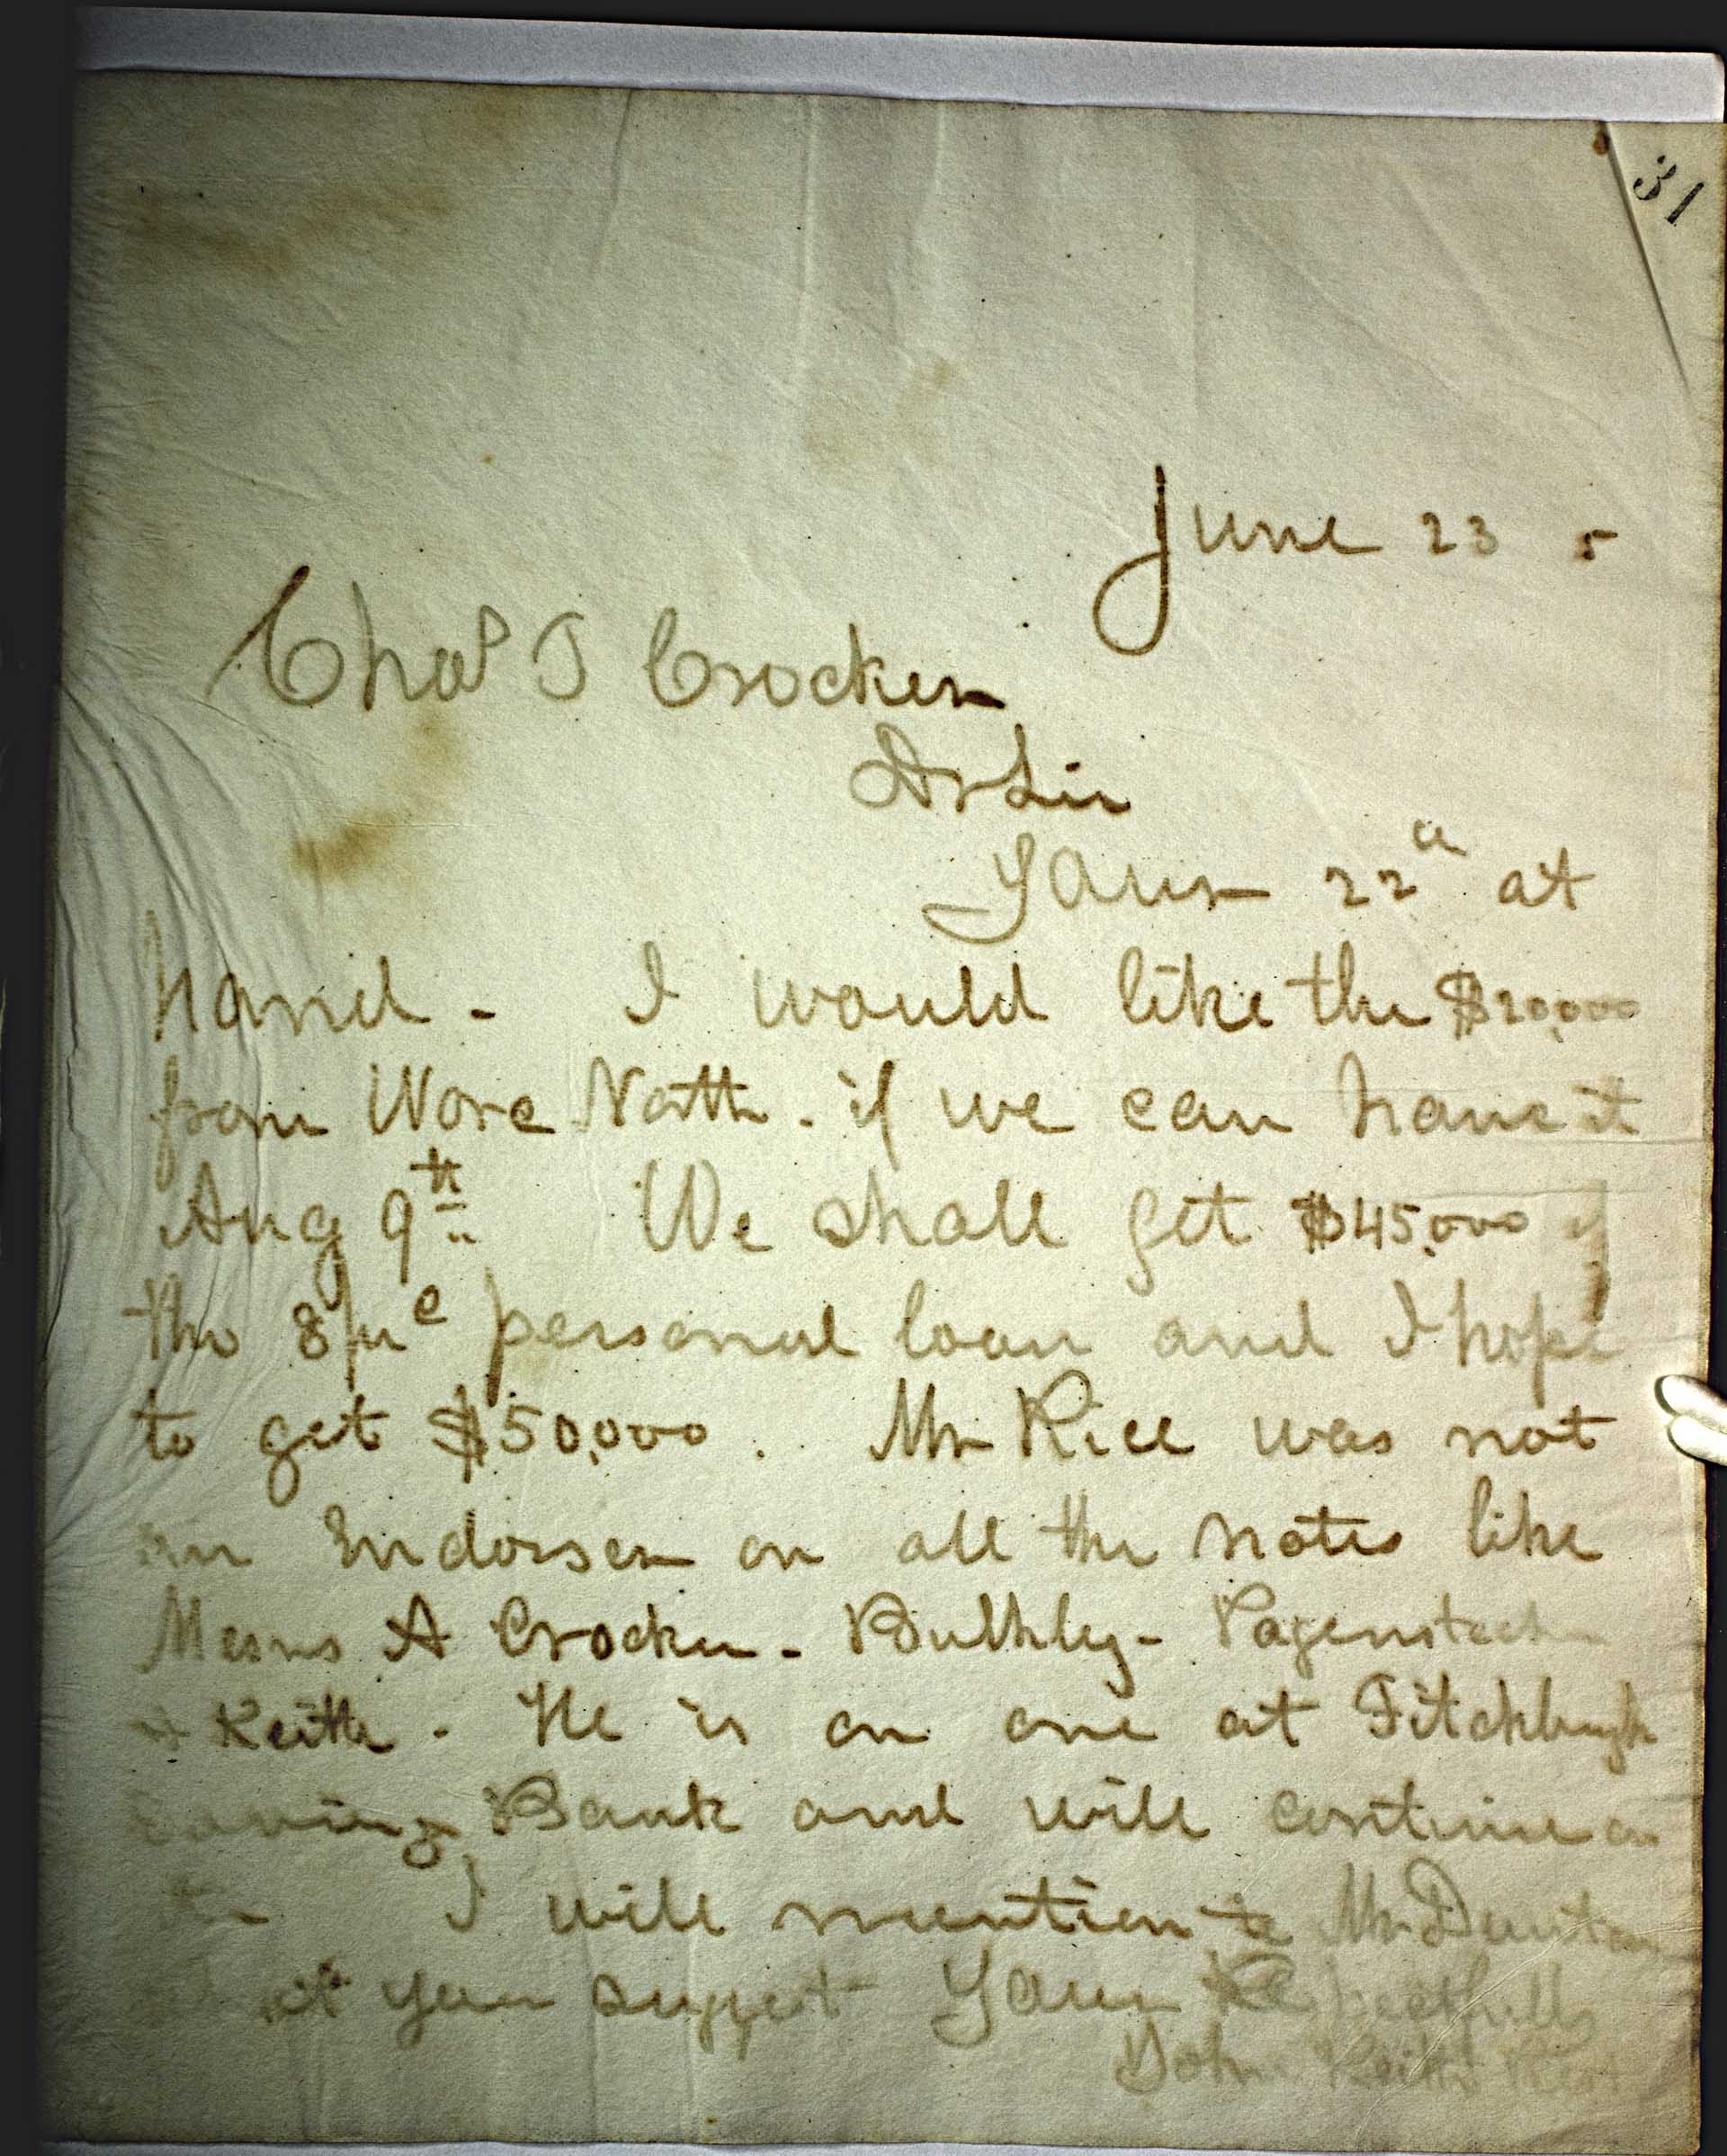 31
June 23 5
Chas T Crocker
Dr Sir
Yours 22d at
hand - I would like the $20,000
from Worc North. if we can have it
Aug 9th We shall get $45,000 of
the 8 personal loan and I hope
to get $50,000. Mr Rice was not
an Endorser on all the notes like
Messrs A Crocker - Bulkley - Pagenstech
& Keith - He is on one at Fitchburgh
Saving Bank and will continue on
I will mention to Mr Denton
you suggest Yours Respectfully
John Keith